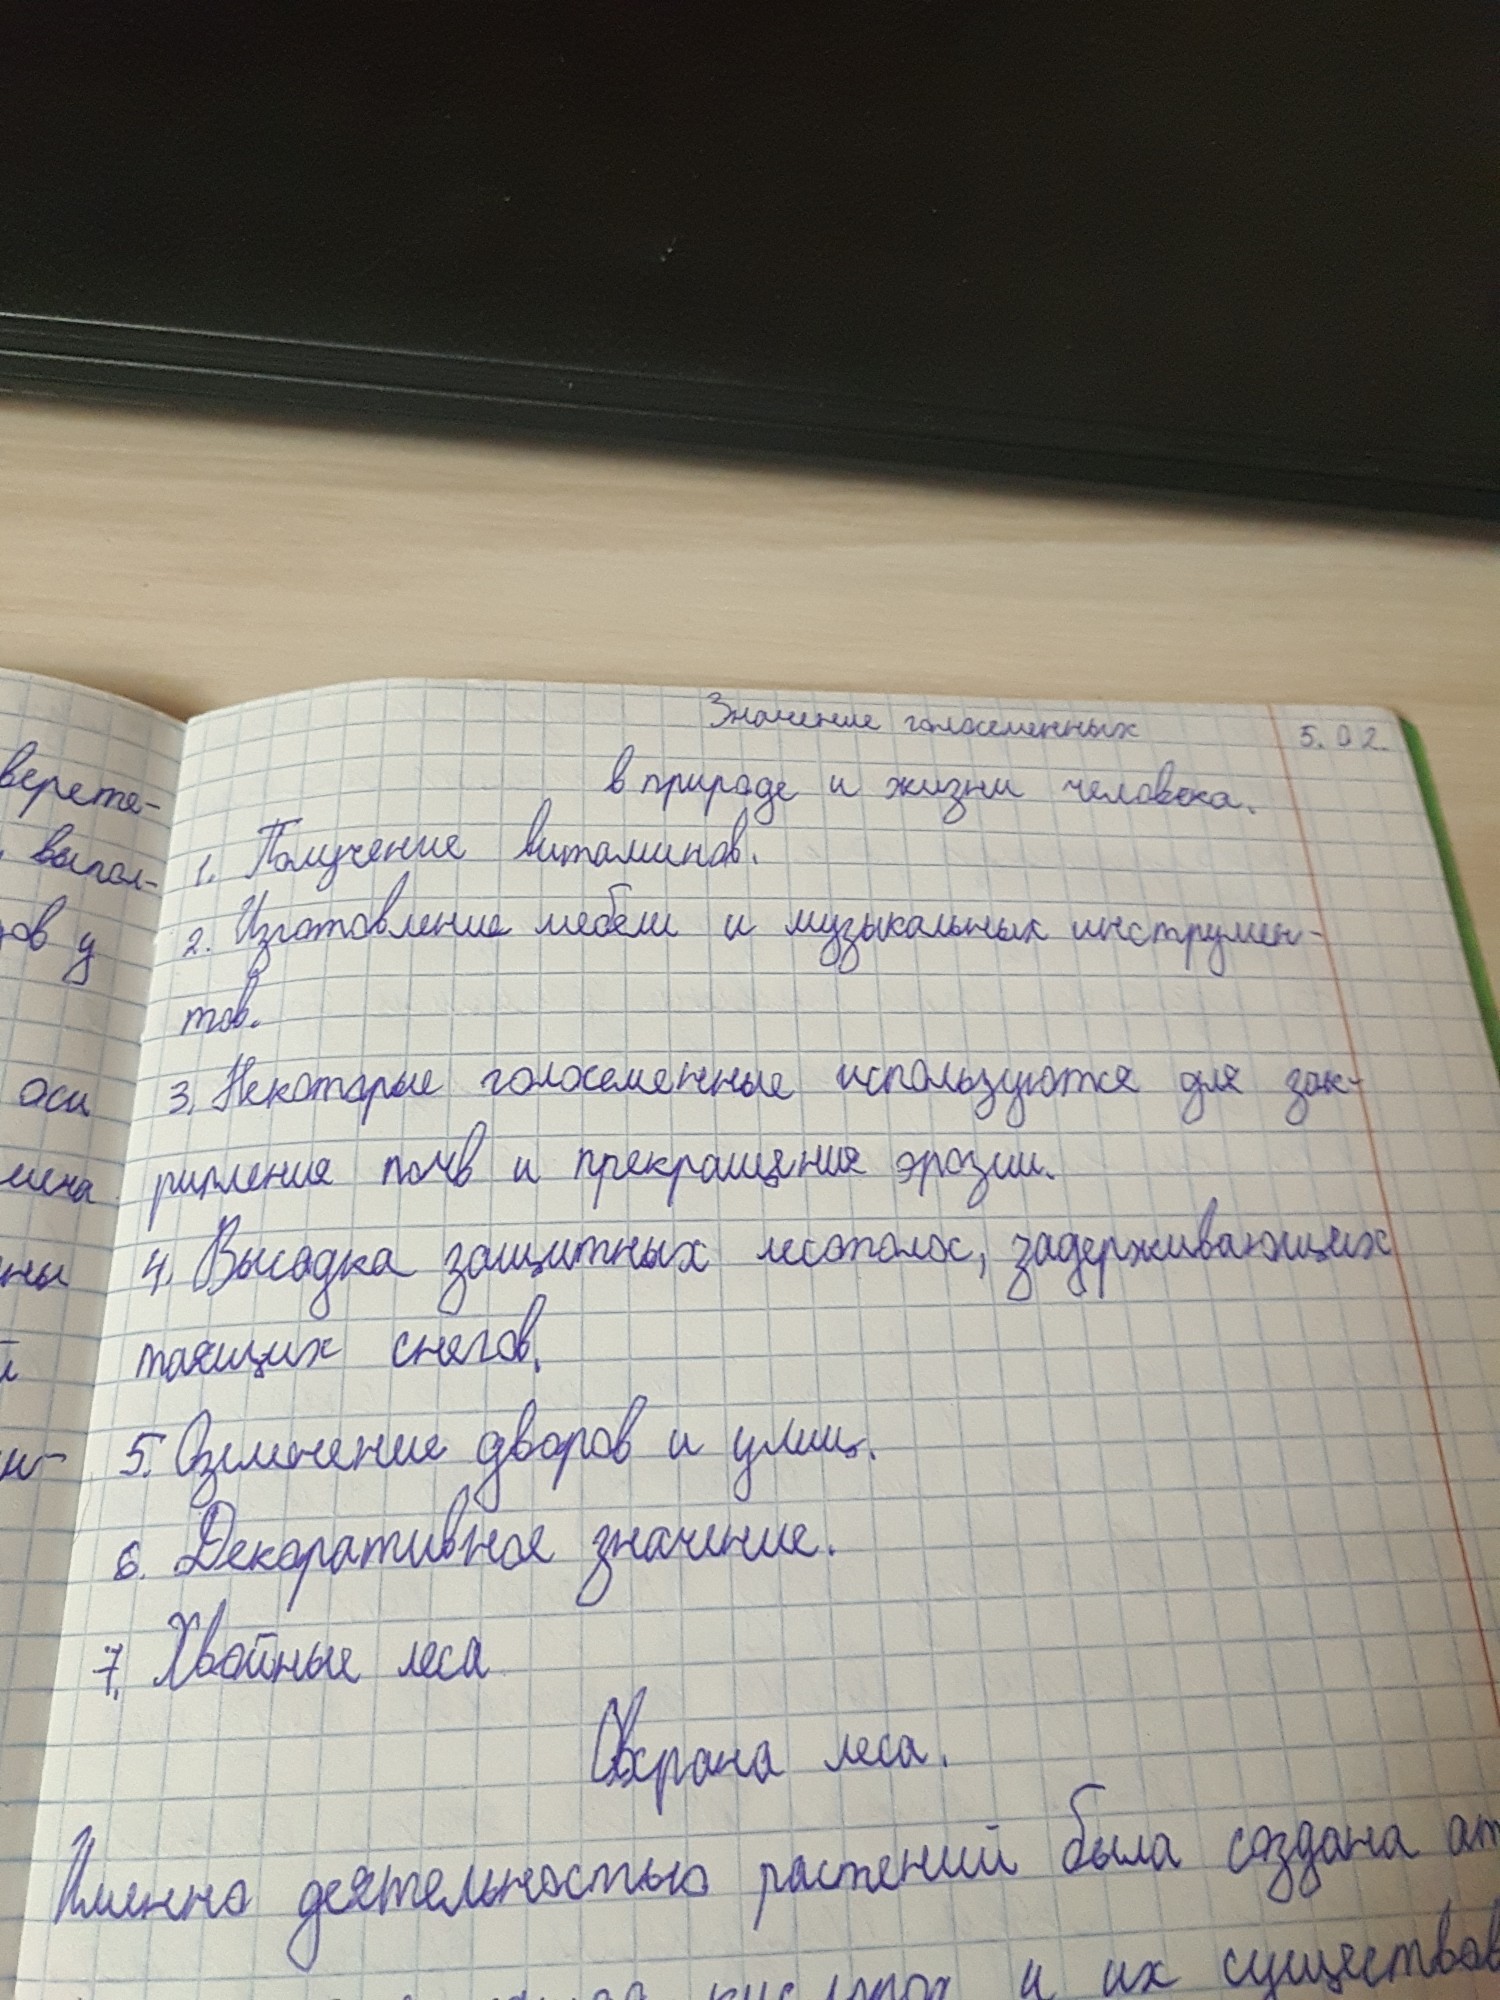 верете-
выпол-
ов у
оси
мена
ны
й
н-
Значение голосеменных 5.02.
в природе и жизни человека.
1. Получение витаминов.
2. Изготовление мебели и музыкальных инструмен-
тов.
3. Некоторые голосеменные используются для зак-
рипления почв и прекращения эрозии.
4. Высадка защитных лесополос, задерживающих
таящих снегов.
5. Озеленение дворов и улиц.
6. Декоративное значение.
7. Хвойные леса
Охрана леса.
Именно деятельностью растений была создана ат
кислород и их существов